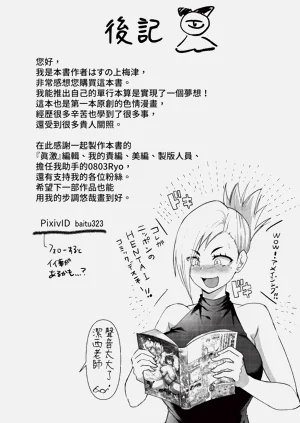 後記
您好，
我是本書作者はすの上梅津，
非常感想您購買這本書。
我能推出自己的單行本算是實現了一個夢想！
這本也是第一本原創的色情漫畫，
經歷很多辛苦也學到了很多事，
還受到很多貴人關照。
在此感謝一起製作本書的
『真激』編輯、我的責編、美編、製版人員、
擔任我助手的0803Ryo，
還有支持我的各位粉絲。
希望下一部作品也能
用我的步調悠哉畫到好。
PixivID baitu323
フォローすると
イイ事が
あるかも…？
ドキ
ドキ
WOW!アメイジング!!
コレが
ニッポンの
HENTAI
コミックデスネー!
聲音太大了
潔西老師